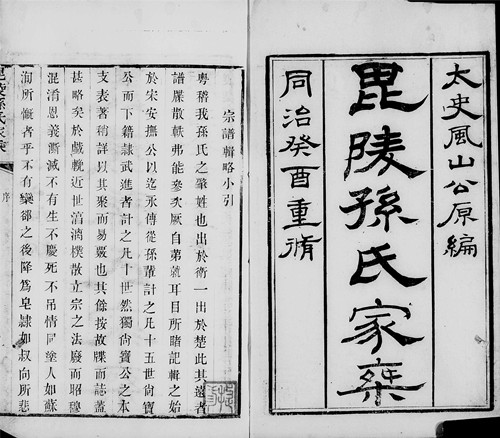 太史風山公原編
毘陵孫氏家乘
同治癸酉重脩
宗譜輯略小引
粵稽我孫氏之肇姓也出於衛一出於楚此其遠者
譜牒散軼弗能參攷厥自弟就耳目所睹記輯之始
於宋安撫公以迄永傳從孫輩計之凡十五世尙寶
公而下籍隸武進者計之凡十世然獨尙寶公之本
支表著稍詳以其聚而易覈也其餘按故牒而誌蓋
甚略矣於戲輓近世淆漓樸散立宗之法廢而昭穆
混淆恩義漸滅不有生不慶死不吊情同塗人如蘇
洵所慨者乎不有欒郤之後降爲皂隸如叔向所悲
毘陵孫氏家乘
序